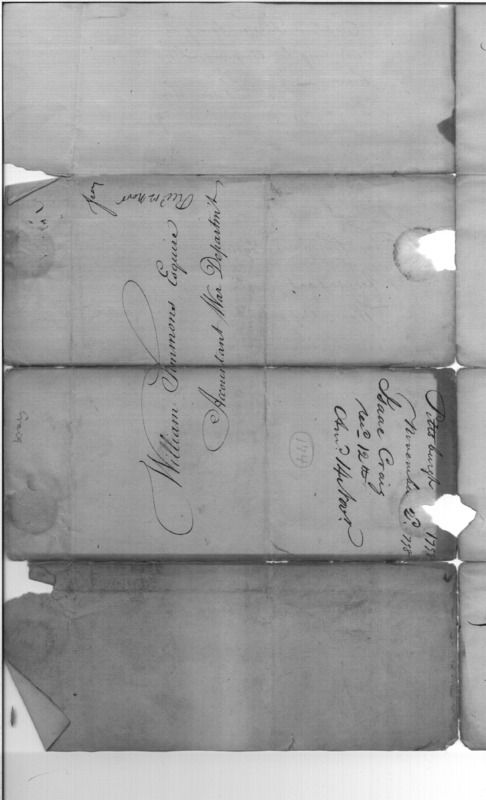 William Simmons Esquire
Accountant War Departmt
Recd 12 Novr
Pittsburgh
November 2d. 1798
Isaac Craig
Recd 12th
Ansd 14 Novr
174
Craig